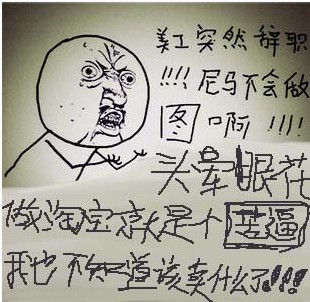 美工突然辞职
!!!尼马不会做
图啊!!!!
头晕眼花
做淘宝就是个苦逼
我也不知道该卖什么了!!!